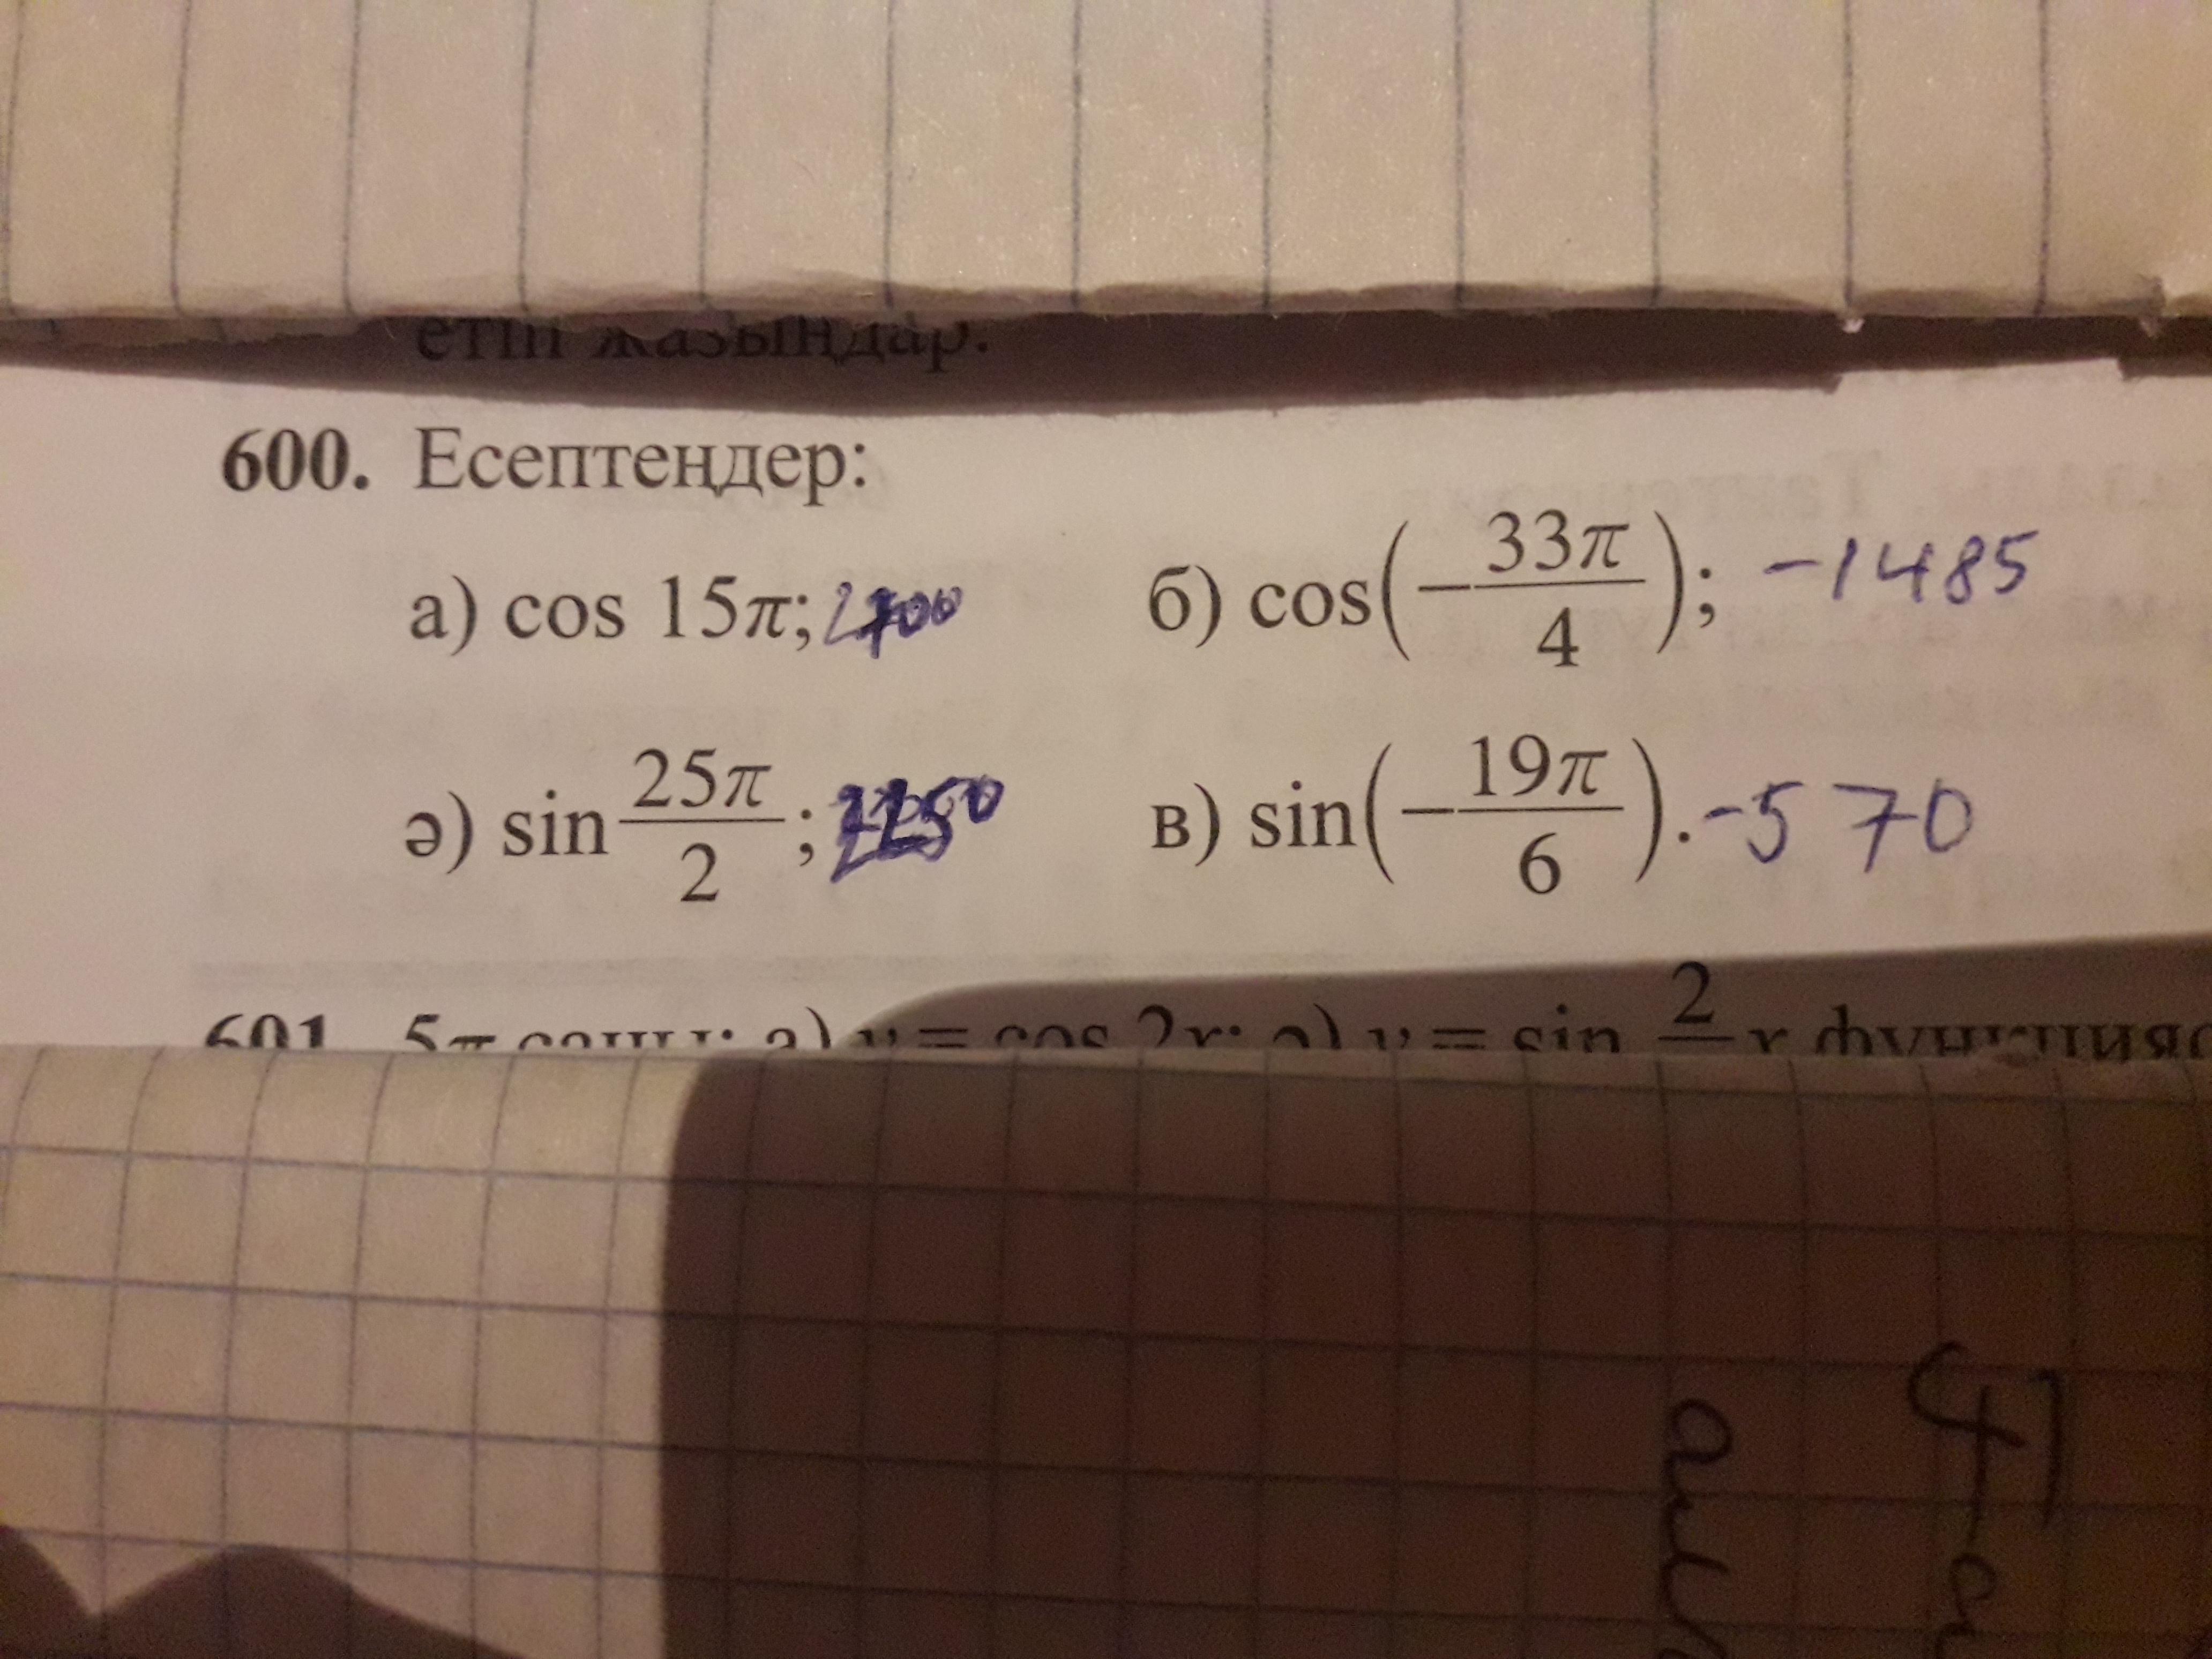 етіп жазыңдар.
600. Есептеңдер:
а) cos 15π; 2700 б) cos(−33π/4); −1485
ə) sin 25π/2; 2250 в) sin(−19π/6). −570
601. 5π саны: а) y = cos 2x; ə) y = sin 2 x функцияс